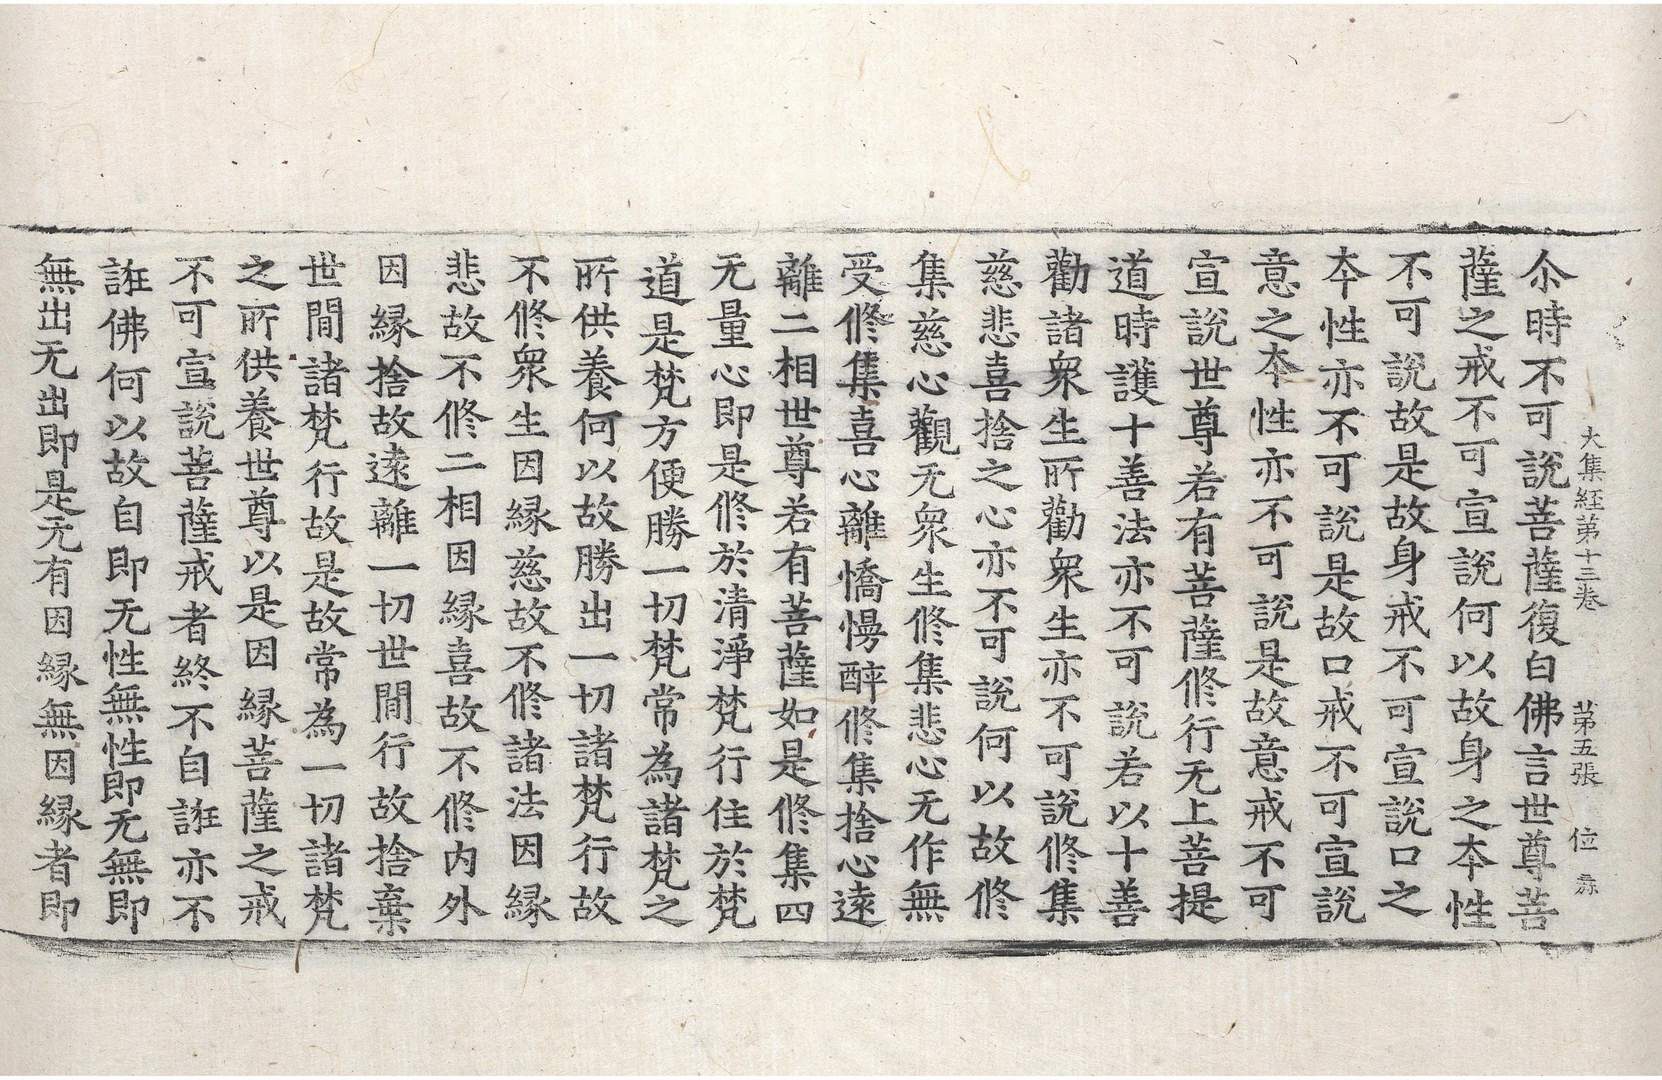 大集経第十三卷 第五張 位
尒時不可說菩薩復白佛言世尊菩
薩之戒不可宣說何以故身之夲性
不可說故是故身戒不可宣說口之
夲性亦不可說是故口戒不可宣說
意之夲性亦不可說是故意戒不可
宣說世尊若有菩薩修行无上菩提
道時護十善法亦不可說若以十善
勸諸衆生所勸衆生亦不可說修集
慈悲喜捨之心亦不可說何以故修
集慈心觀无衆生修集悲心无作無
受修集喜心離憍慢醉修集捨心遠
離二相世尊若有菩薩如是修集四
无量心即是修於清淨梵行住於梵
道是梵方便勝一切梵常為諸梵之
所供養何以故勝出一切諸梵行故
不修衆生因縁慈故不修諸法因縁
悲故不修二相因縁喜故不修内外
因縁捨故遠離一切世間行故捨棄
世間諸梵行故是故常為一切諸梵
之所供養世尊以是因縁菩薩之戒
不可宣說菩薩戒者終不自誑亦不
誑佛何以故自即无性無性即无無即
無出无出即是无有因縁無因縁者即